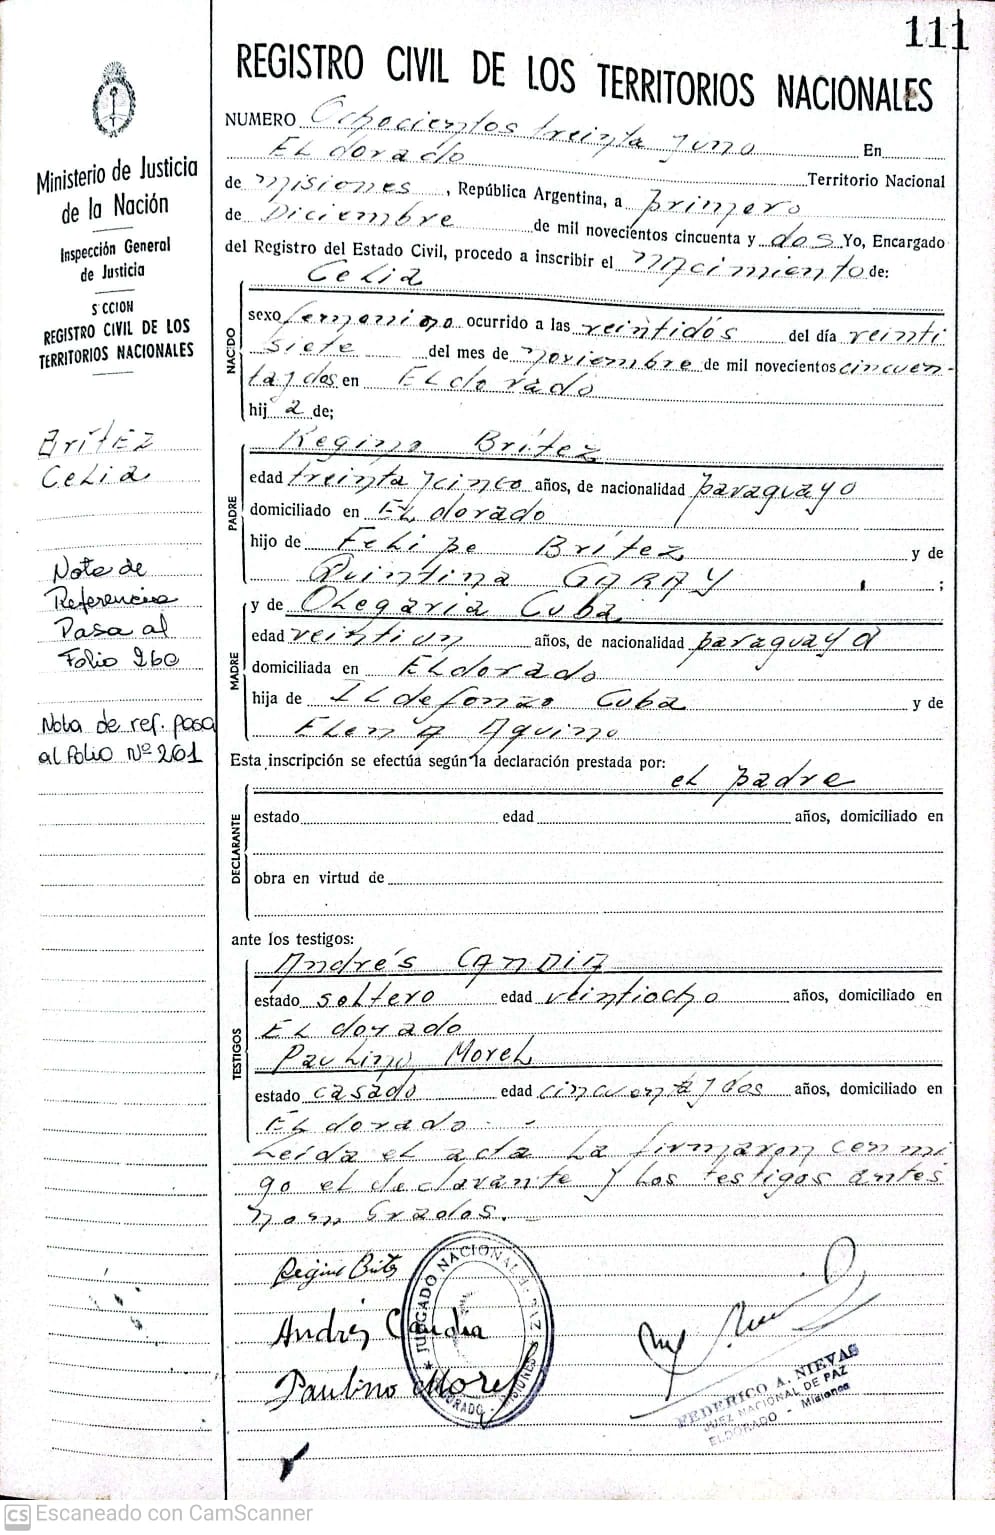 111
REGISTRO CIVIL DE LOS TERRITORIOS NACIONALES
Ministerio de Justicia
de la Nación
Inspección General
de Justicia
S CCION
REGISTRO CIVIL DE LOS
TERRITORIOS NACIONALES
Brítez
Celia
Nota de
Referencia
Pasa al
Folio 260
Nota de ref. pasa
al Folio Nº 261
NUMERO Ochocientos treinta y uno En
Eldorado Territorio Nacional
de Misiones, República Argentina, a primero
de Diciembre de mil novecientos cincuenta y dos Yo, Encargado
del Registro del Estado Civil, procedo a inscribir el nacimiento de:
NACIDO
Celia
sexo femenino ocurrido a las veintidós del día veinti
siete del mes de noviembre de mil novecientos cincuen-
ta y dos en Eldorado
hij a de;
PADRE
Regino Brítez
edad treinta y cinco años, de nacionalidad paraguayo
domiciliado en Eldorado
hijo de Felipe Brítez y de
Quintina GARAY ;
MADRE
y de Olegaria Cuba
edad veintiun años, de nacionalidad paraguaya
domiciliada en Eldorado
hija de Ildefonzo Cuba y de
Elena Aquino
Esta inscripción se efectúa según la declaración prestada por:
el padre
DECLARANTE
estado edad años, domiciliado en
obra en virtud de
ante los testigos:
TESTIGOS
Andrés CANDIA
estado soltero edad veintiocho años, domiciliado en
Eldorado
Paulino Morel
estado casado edad cincuenta y dos años, domiciliado en
Eldorado. -
Leída el acta la firmaron conmi
go el declarante y los testigos antes
nombrados. -
Regino Britez
Andrés Candia
Paulino Morel
JUZGADO NACIONAL D. PAZ
ELDORADO - MISIONES
FEDERICO A. NIEVAS
JUEZ NACIONAL DE PAZ
ELDORADO - Misiones
CS Escaneado con CamScanner